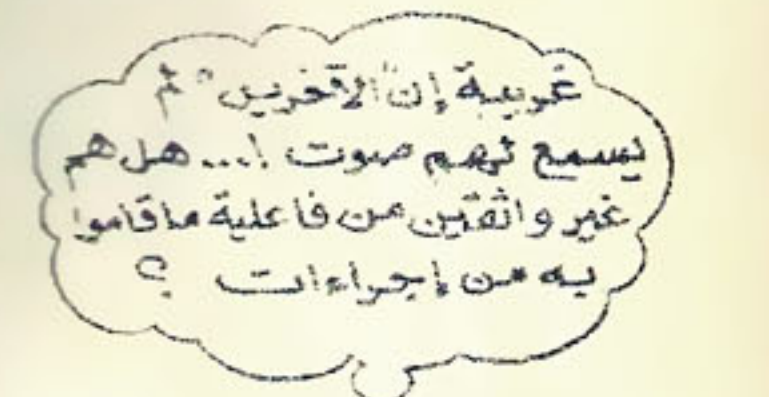 غريبة إن "الآخرين" لم
يسمع لهم صوت !... هل هم
غير واثقين من فاعلية ما قاموا
به من إجراءات ؟